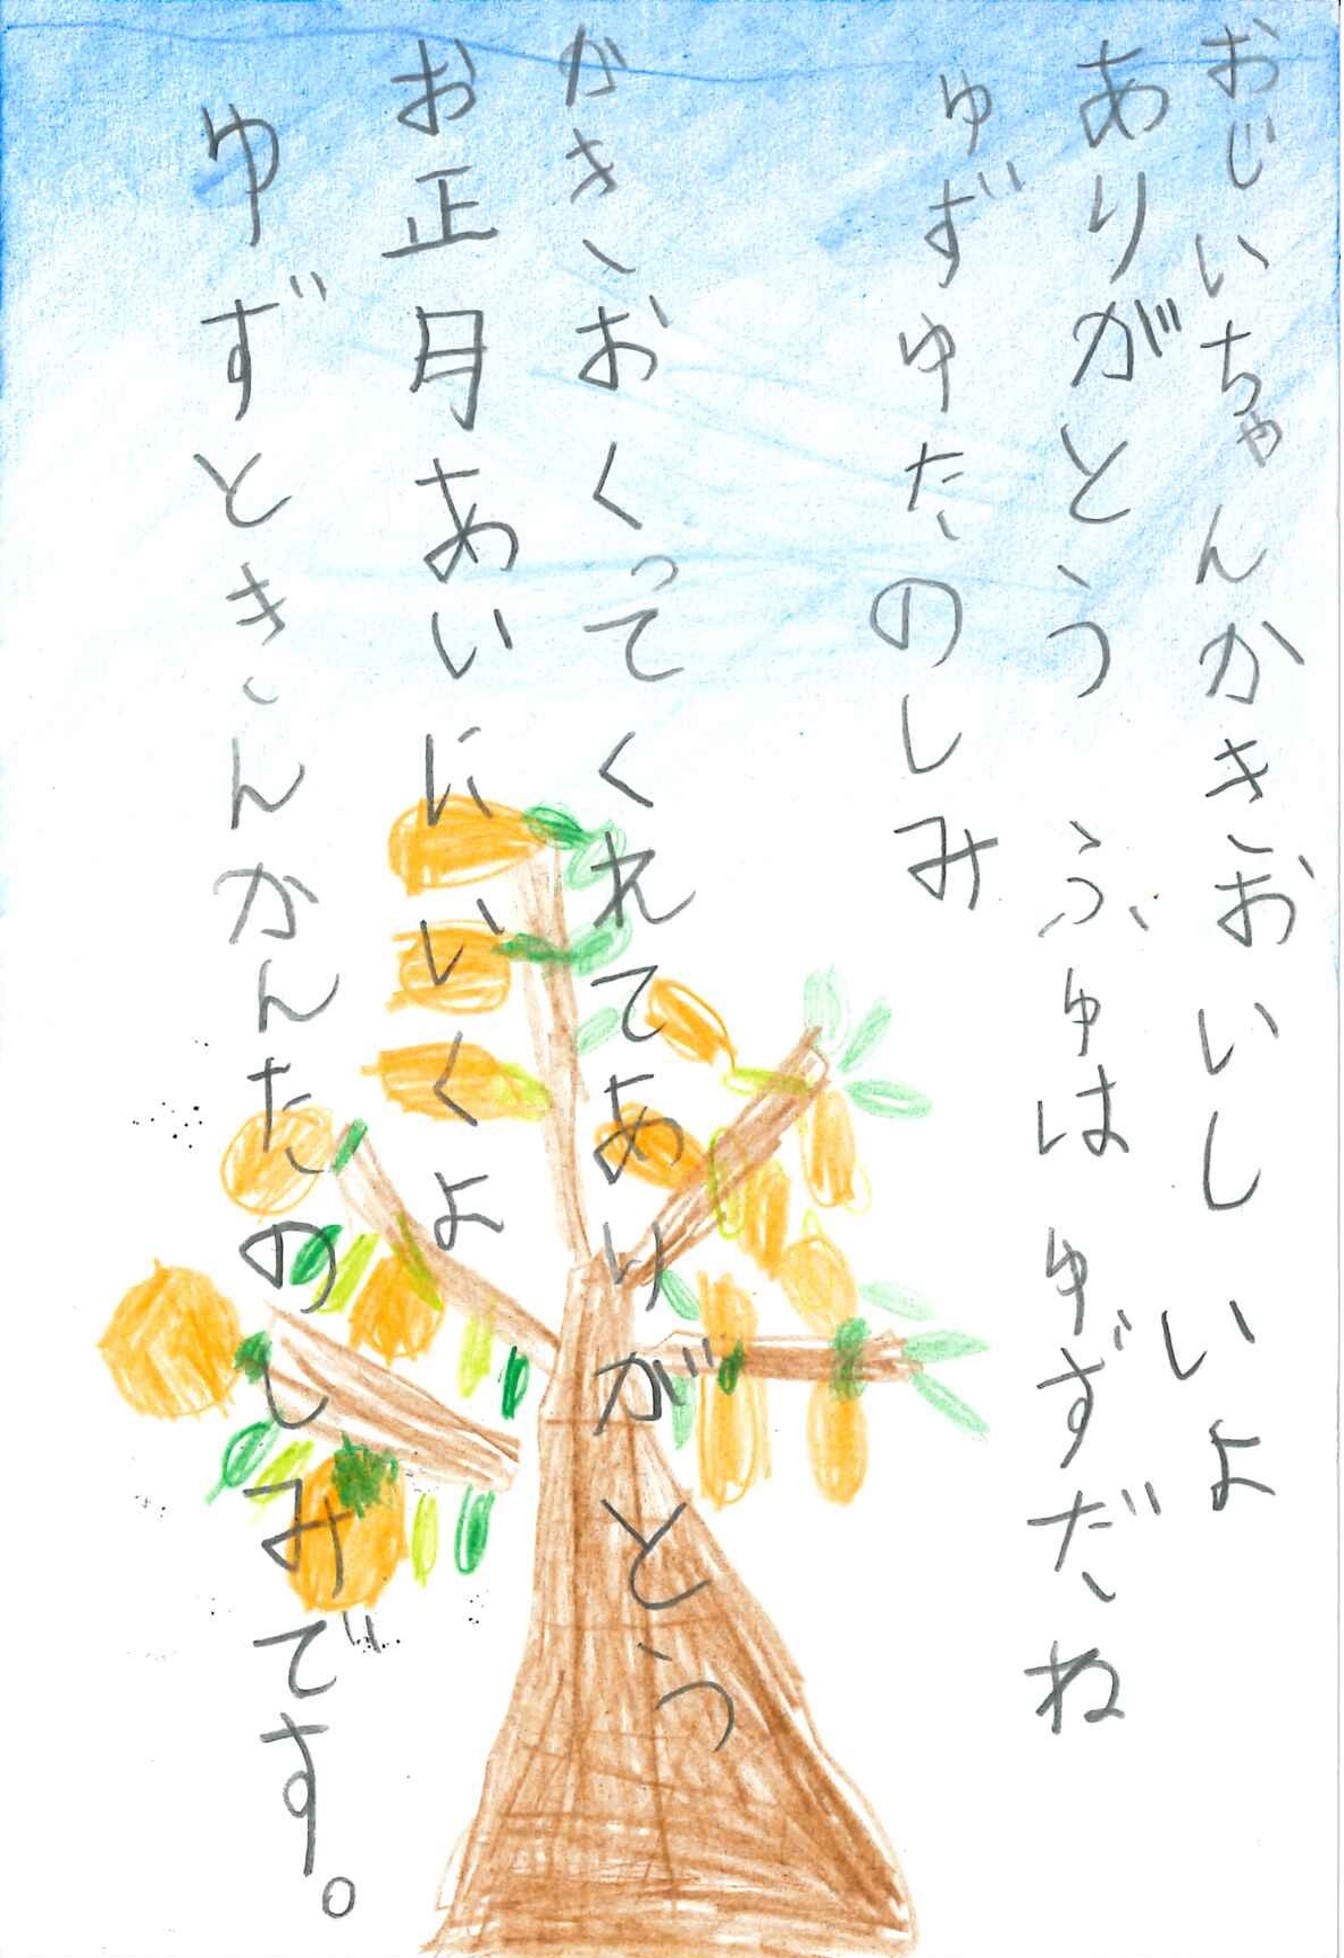 おじいちゃんかきおいしいよ
ありがとう ふゆは ゆずだね
ゆずゆたのしみ
がきおくってくれてありがとう
お正月あいにいくよ
ゆずときんかんたのしみです。